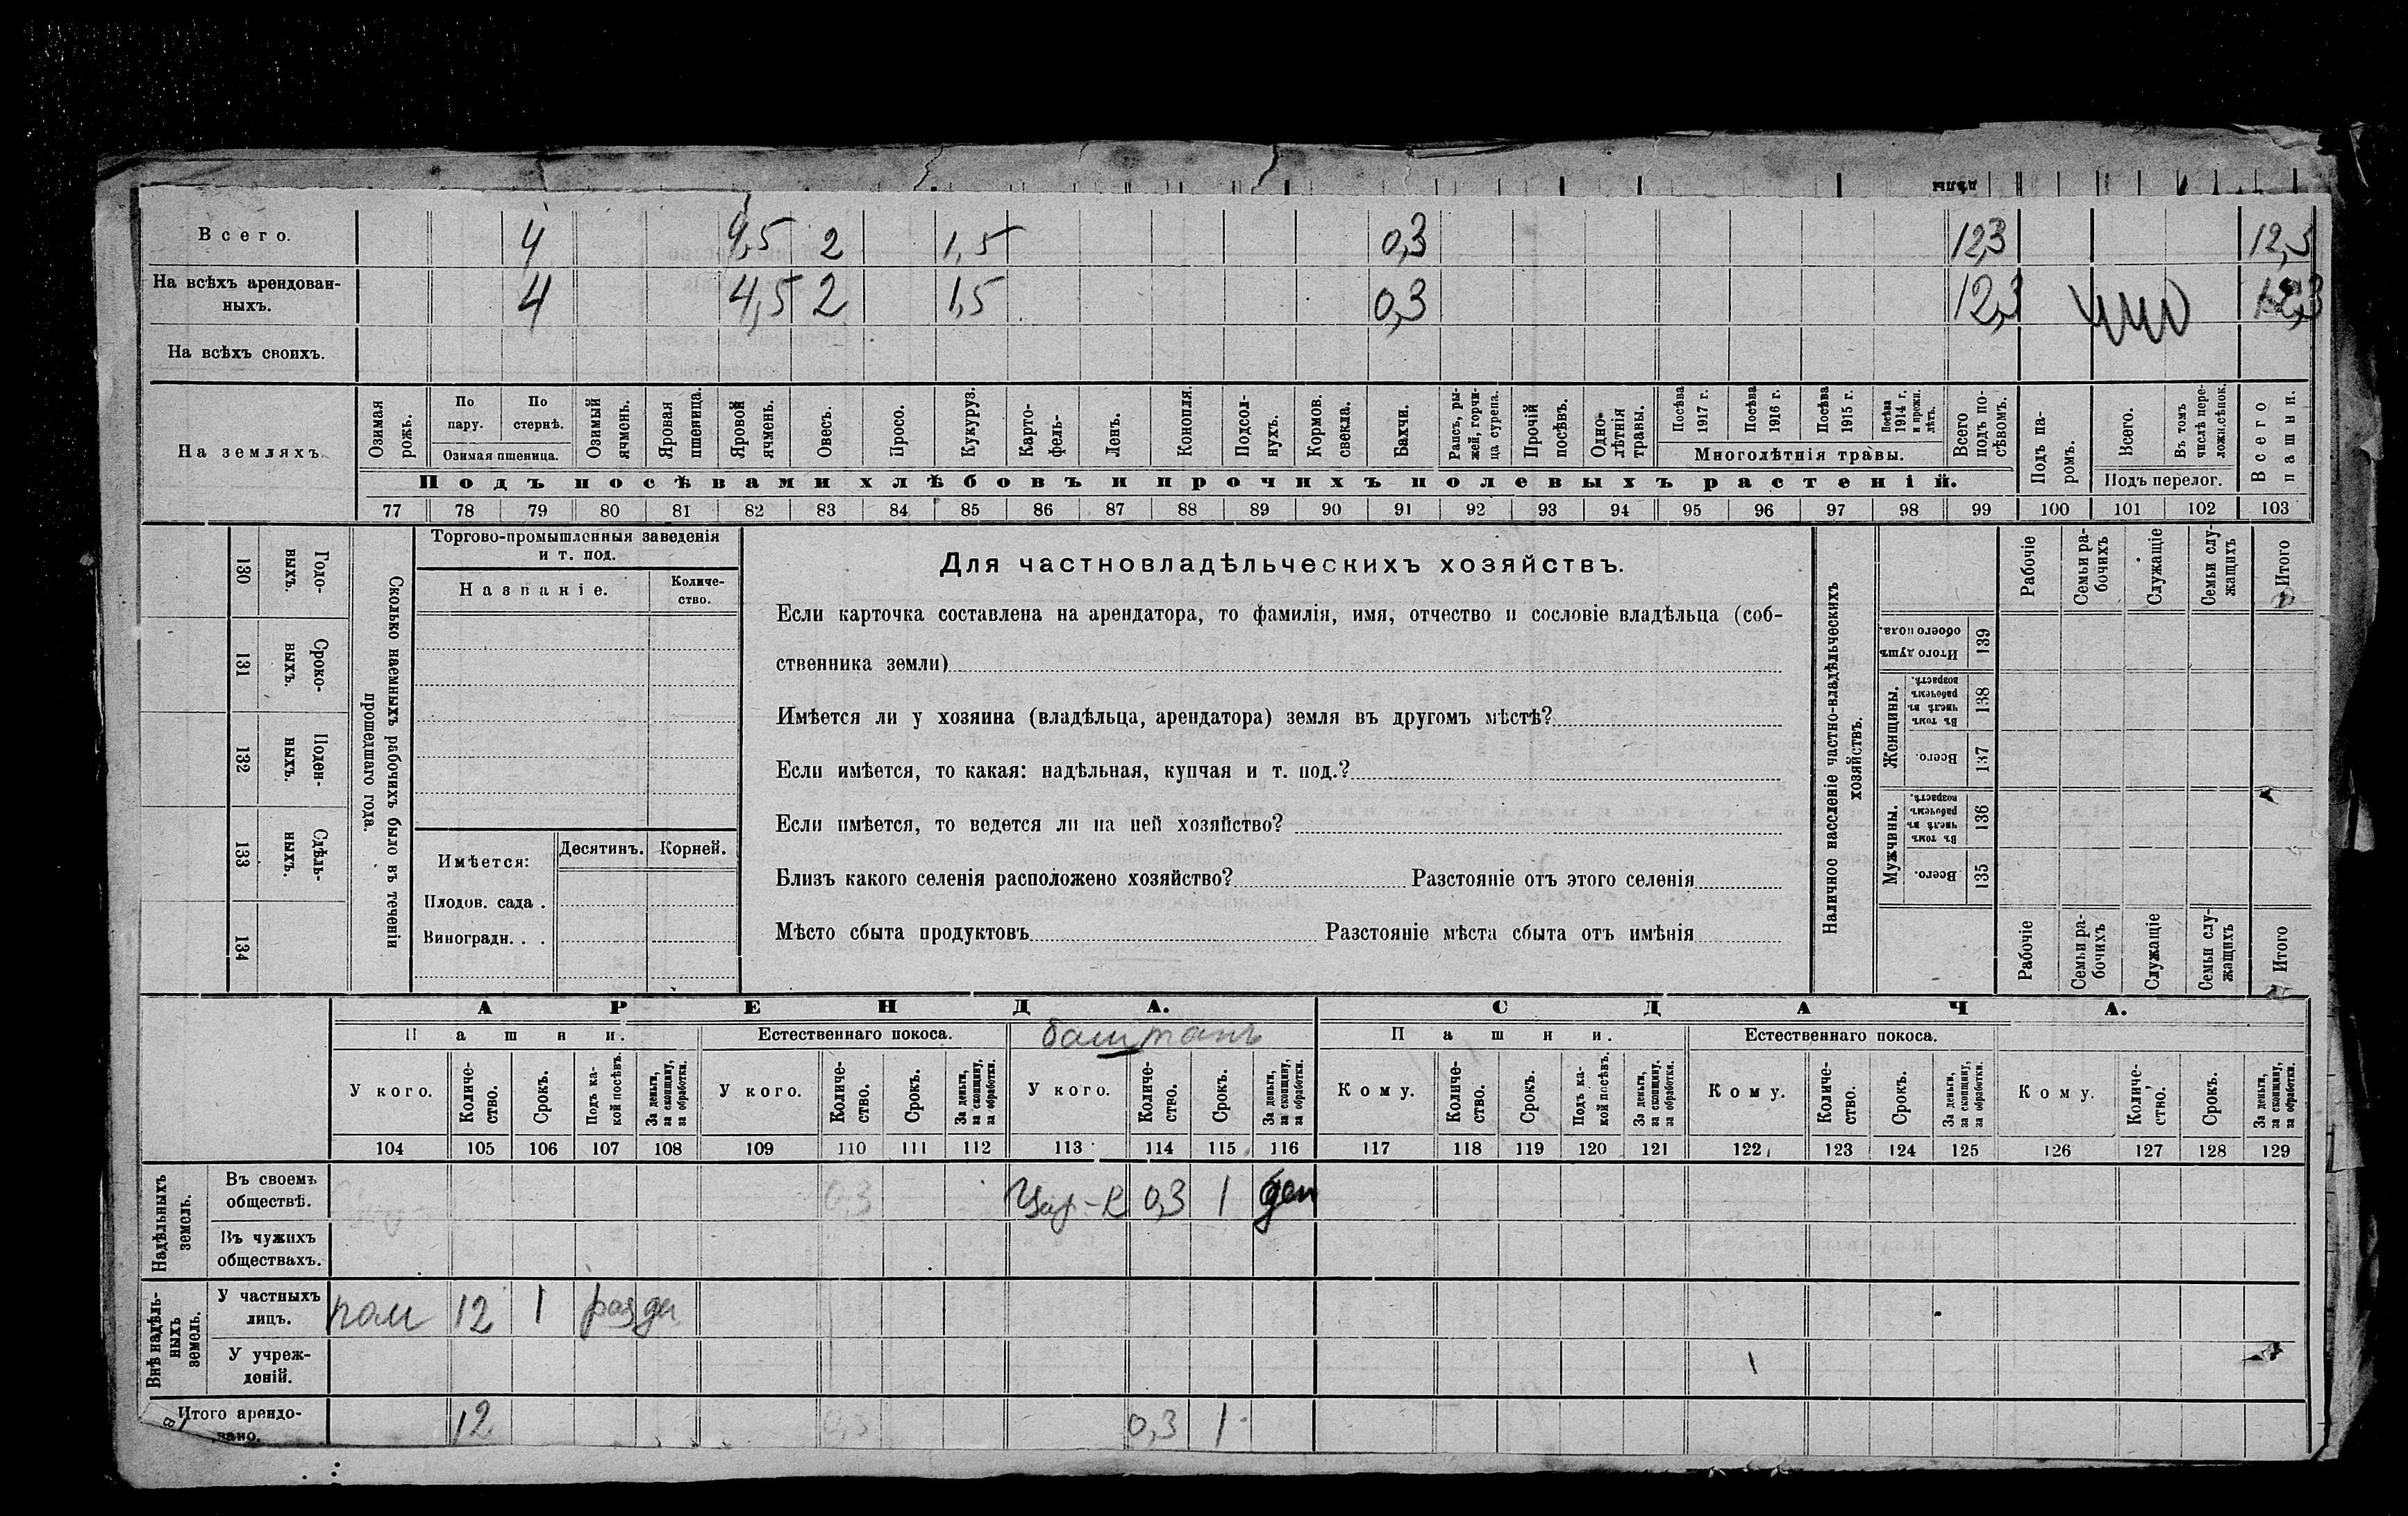 Всего. 4 4,5 2 1,5 0,3 12,3 12,3
На всѣхъ арендован-
ныхъ. 4 4,5 2 1,5 0,3 12,3 12,3
На всѣхъ своихъ.
На земляхъ.
Озимая рожь.
По пару.
По стернѣ.
Озимая пшеница.
Озимый ячмень.
Яровая пшеница.
Яровой ячмень.
Овесъ.
Просо.
Кукуруз.
Карто-фель.
Ленъ.
Конопля.
Подсол-нухъ.
Кормов. свекла.
Бахчи.
Рапсъ, ры-жей, горчи-ца сурепа.
Прочій посѣвъ.
Одно-лѣтнія травы.
Посѣва 1917 г.
Посѣва 1916 г.
Посѣва 1915 г.
Посѣва 1914 г. и прежн. лѣтъ.
Многолѣтнія травы.
Всего подъ по-сѣвомъ.
Подъ па-ромъ.
Всего.
Въ томъ числѣ пере-ложн. сѣнок.
Подъ перелог.
Всего пашни.
Подъ посѣвами хлѣбовъ и прочихъ полевыхъ растеній.
77 78 79 80 81 82 83 84 85 86 87 88 89 90 91 92 93 94 95 96 97 98 99 100 101 102 103
130 Годо-выхъ.
131 Сроко-ныхъ.
132 Поден-ныхъ.
133 Сдѣль-ныхъ.
134
Сколько наемныхъ рабочихъ было въ теченіи
прошедшаго года.
Торгово-промышленныя заведенія
и т. под.
Названіе.
Количе-ство.
Имѣется: Десятинъ. Корней.
Плодов. сада .
Виноградн. . .
Для частновладѣльческихъ хозяйствъ.
Если карточка составлена на арендатора, то фамилія, имя, отчество и сословіе владѣльца (соб-
ственника земли)
Имѣется ли у хозяина (владѣльца, арендатора) земля въ другомъ мѣстѣ?
Если имѣется, то какая: надѣльная, купчая и т. под.?
Если имѣется, то ведется ли на ней хозяйство?
Близъ какого селенія расположено хозяйство? Разстояніе отъ этого селенія
Мѣсто сбыта продуктовъ Разстояніе мѣста сбыта отъ имѣнія
Наличное населеніе частно-владѣльческихъ
хозяйствъ.
Рабочіе
Семьи ра-бочихъ
Служащіе
Семьи слу-жащихъ
Итого
Итого душъ обоего пола. 139
Женщины.
Въ томъ числѣ въ рабочемъ возрастѣ. 138
Всего. 137
Мужчины.
Въ томъ числѣ въ рабочемъ возрастѣ. 136
Всего. 135
Рабочіе
Семьи ра-бочихъ
Служащіе
Семьи слу-жащихъ
Итого
АРЕНДА. СДАЧА.
Пашни. Естественнаго покоса. баштанъ Пашни. Естественнаго покоса.
У кого. Количе-ство. Срокъ. Подъ ка-кой посѣвъ. За деньги, за скопщину, за обработки. У кого. Количе-ство. Срокъ. За деньги, за скопщину, за обработки. У кого. Количе-ство. Срокъ. За деньги, за скопщину, за обработки. Кому. Количе-ство. Срокъ. Подъ ка-кой посѣвъ. За деньги, за скопщину, за обработки. Кому. Количе-ство. Срокъ. За деньги, за скопщину, за обработки. Кому. Количе-ство. Срокъ. За деньги, за скопщину, за обработки.
104 105 106 107 108 109 110 111 112 113 114 115 116 117 118 119 120 121 122 123 124 125 126 127 128 129
Надѣльныхъ земель.
Въ своемъ
обществѣ. 0,3 0,3 1 ден
Въ чужихъ
обществахъ.
Внѣ надѣль-ныхъ земель.
У частныхъ
лицъ. пом 12 1
У учреж-
деній.
Итого арендо-
вано. 12 0,3 0,3 1